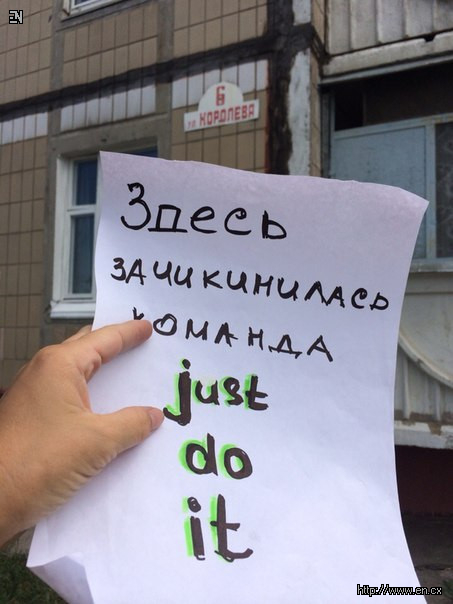 EN
6
ул. КОРОЛЕВА
Здесь
ЗАЧИКИНИЛАСЬ
КОМАНДА
just
do
it
http://www.en.cx